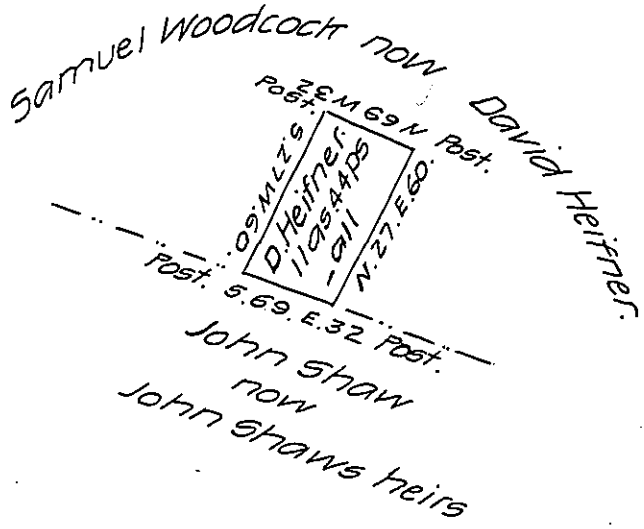 Samuel Woodcock now David Heifner.
Post.
N 69 W 32
Post.
S. 27 W. 60.
D. Heifner.
11as. 44ps
-all
N. 27. E. 60.
Post.
S. 69. E. 32
Post.
John Shaw
now
John Shaws heirs